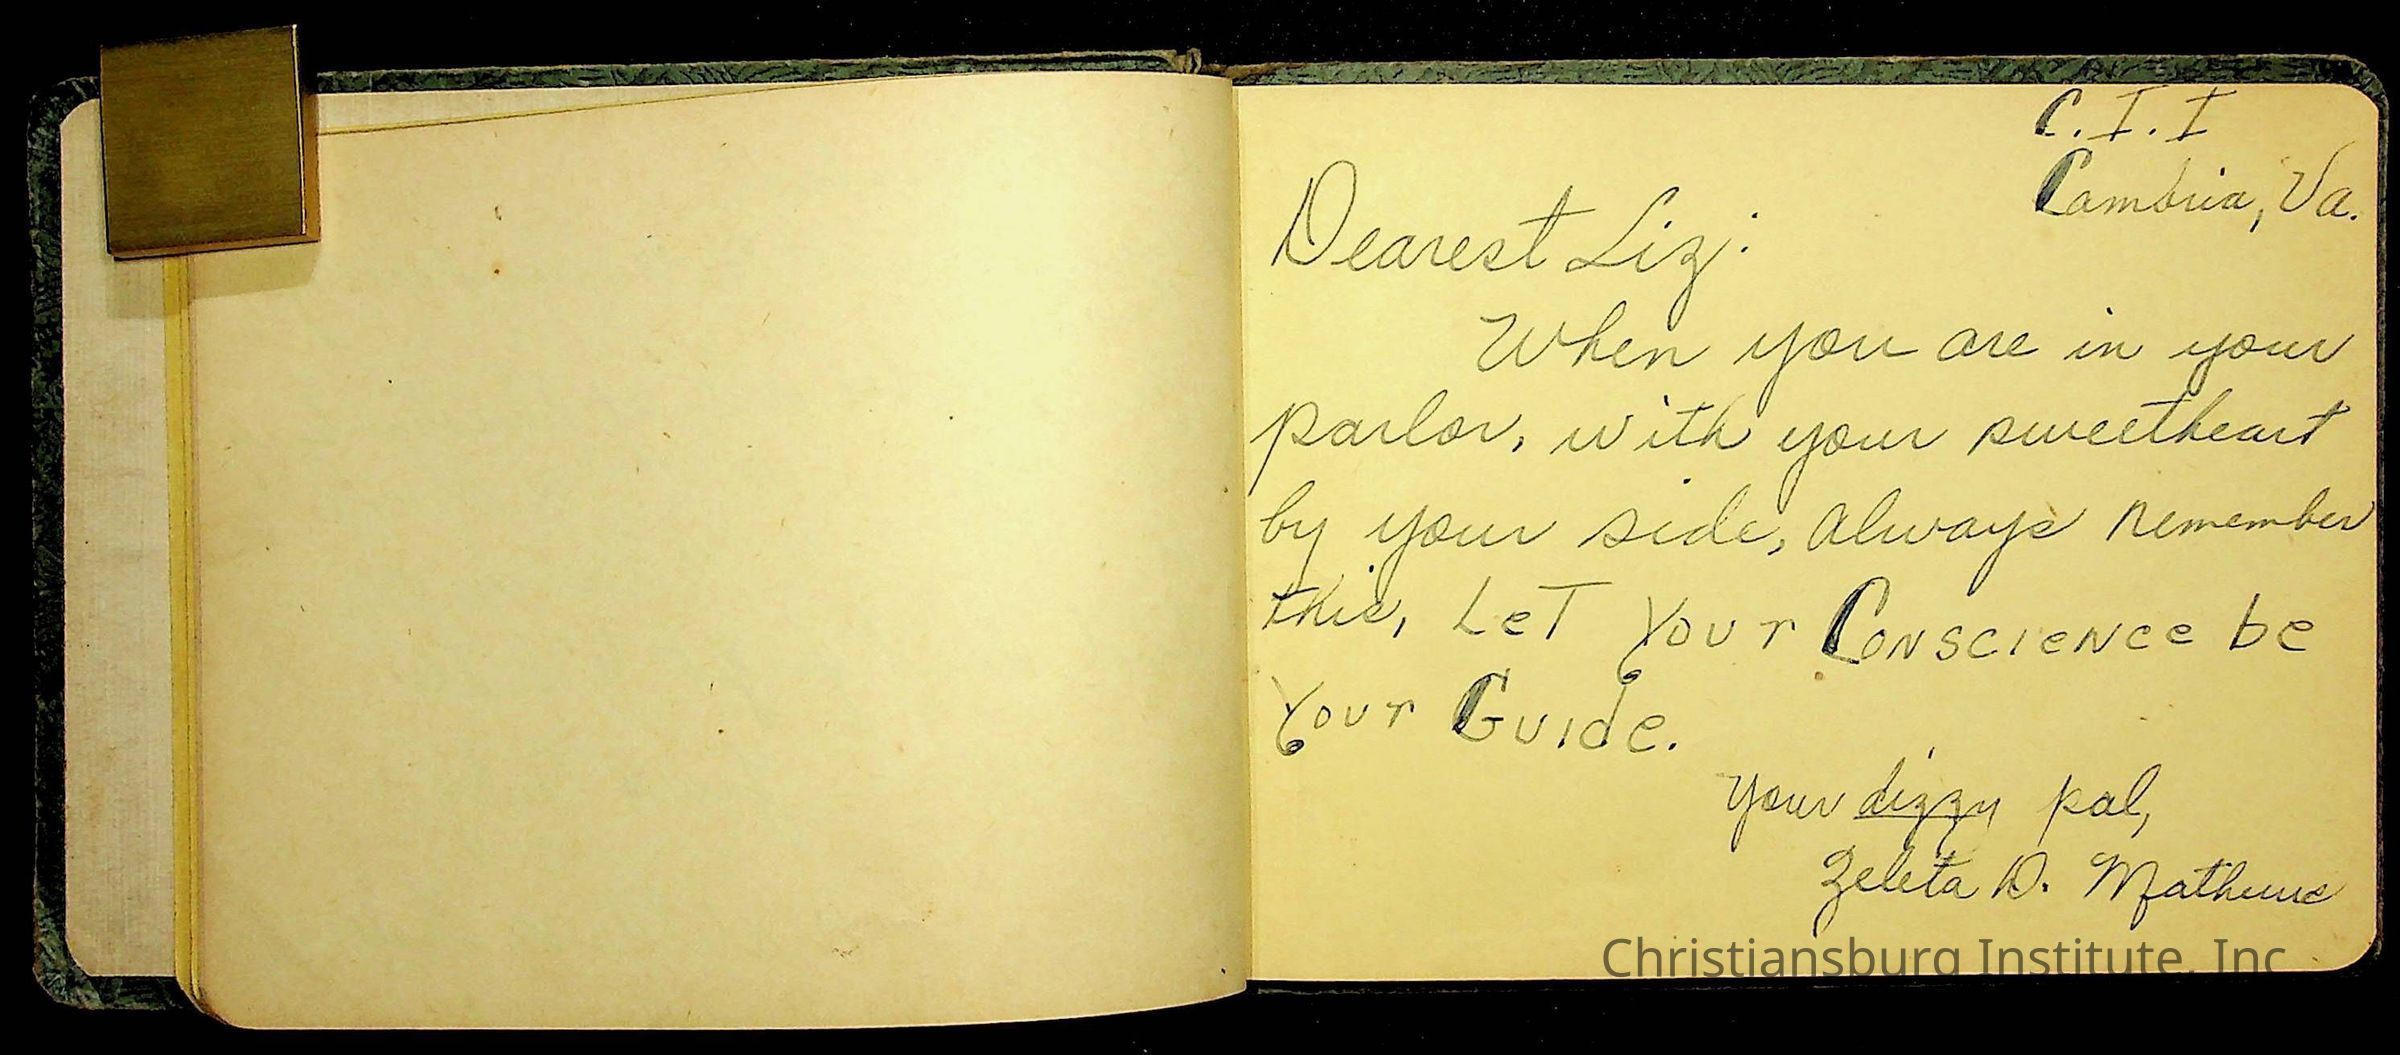 C. I. I
Cambria, Va.
Dearest Liz:
When you are in your
parlor, with your sweetheart
by your side, always remember
this, Let Your Conscience be
Your Guide.
Your dizzy pal,
Zeleta D. Mathews
Christiansburg Institute, Inc